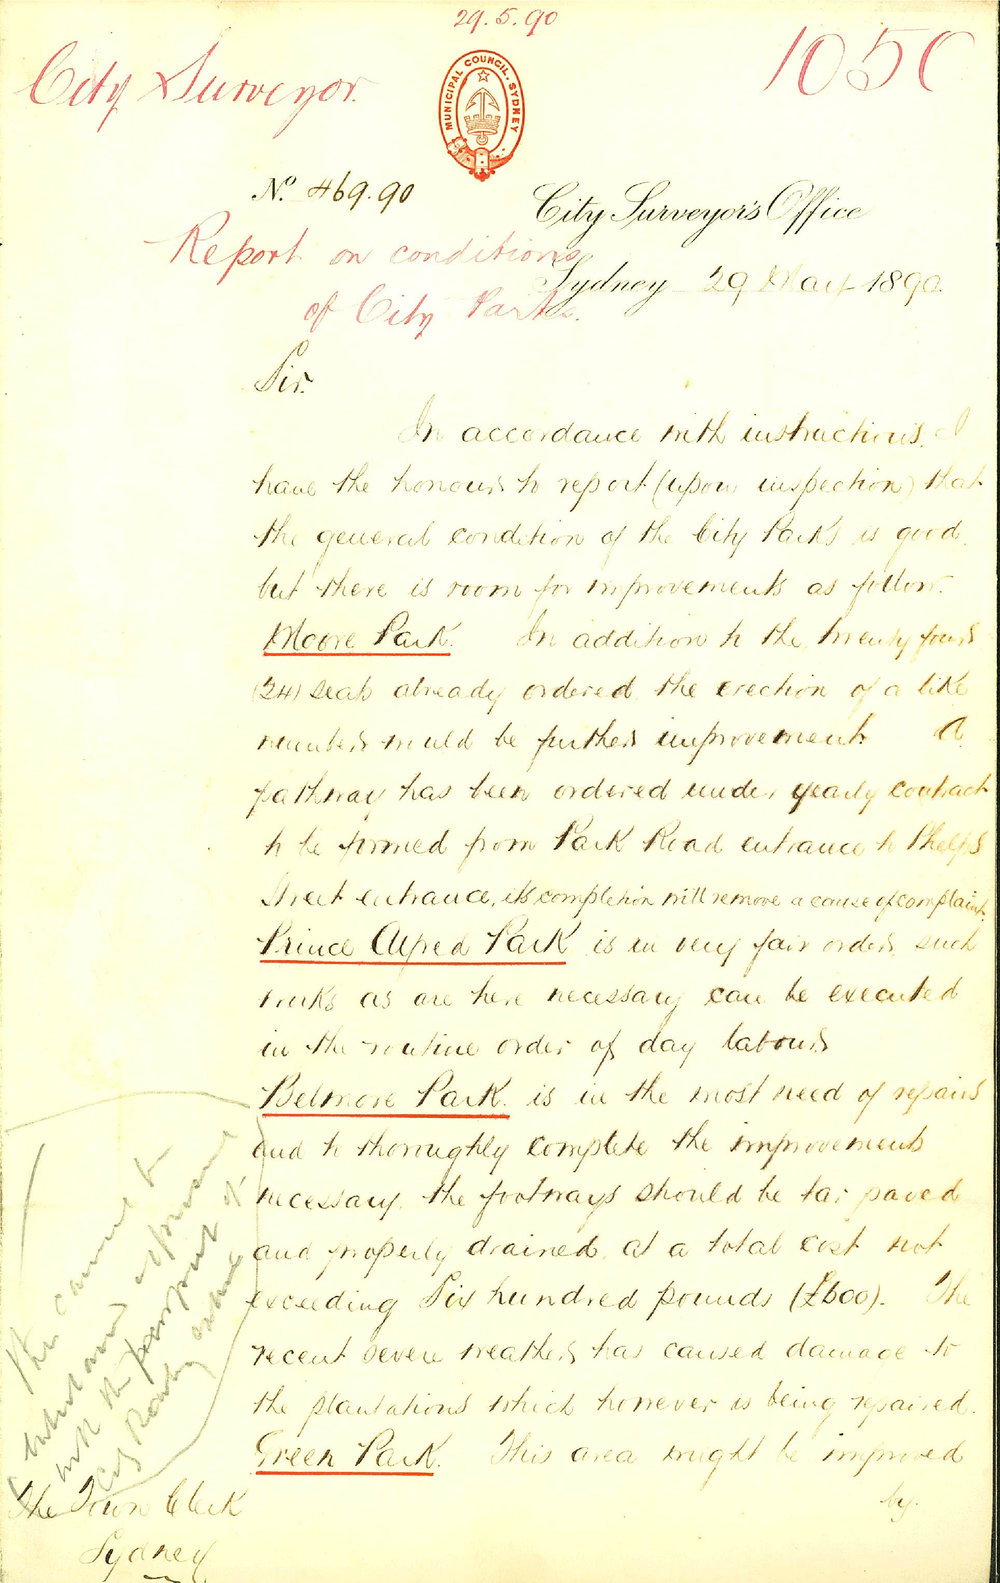 29.5.90
City Surveyor.
1050
MUNICIPAL COUNCIL. SYDNEY
No. 469.90
City Surveyor's Office
Report on conditions
Sydney 29 May 1890.
of City Parks.
Sir.
In accordance with instructions, I
have the honour to report (upon inspection) that
the general condition of the City Parks is good,
but there is room for improvements as follow.
Moore Park. In addition to the twenty four
(24) seats already ordered the erection of a like
number would be further improvement. A
pathway has been ordered under yearly contract
to be formed from Park Road entrance to Phelps
Street entrance, its completion will remove a cause of complaint.
Prince Alfred Park is in very fair order, such
works as are here necessary can be executed
in the routine order of day labour
Belmore Park. is in the most need of repairs
and to thoroughly complete the improvements
necessary, the footways should be tar paved
and properly drained, at a total cost not
exceeding Six hundred pounds (£600). The
recent severe weather has caused damage to
the plantations which however is being repaired.
Green Park. This area might be improved
by.
This cannot be
with the
The Town Clerk
Sydney